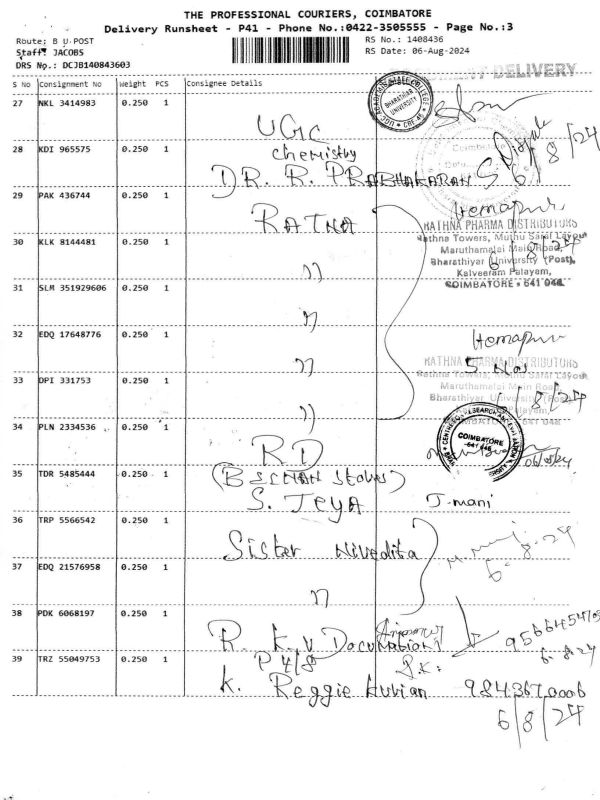 THE PROFESSIONAL COURIERS, COIMBATORE
Delivery Runsheet - P41 - Phone No.:0422-3505555 - Page No.:3
Route: B U POST
RS No.: 1408436
Staff: JACOBS
RS Date: 06-Aug-2024
DRS No.: DCJB140843603
DELIVERY
S No Consignment No Weight PCS Consignee Details
27 NKL 3414983 0.250 1
BHARATHIAR UNIVERSITY
UGC
28 KDI 965575 0.250 1
chemistry
DR. R. PRABHAKARAN
6/8/24
29 PAK 436744 0.250 1
RATNA
RATHNA PHARMA DISTRIBUTORS
Rathna Towers, Muthu Saraf Layout
30 KLK 8144481 0.250 1
Maruthamalai Main Road,
6/8/24
Bharathiyar University (Post),
Kalveeram Palayam,
31 SLM 351929606 0.250 1
COIMBATORE - 641 046.
32 EDQ 17648776 0.250 1
RATHNA PHARMA DISTRIBUTORS
5 Nos
33 DPI 331753 0.250 1
Rathna Towers, Muthu Saraf Layout
Maruthamalai Main Road
6/8/24
34 PLN 2334536 0.250 1
RD
COIMBATORE
-641 046
35 TDR 5485444 0.250 1
S. JEYA
J-mani
36 TRP 5566542 0.250 1
Sister Nivedita
6-8-24
37 EDQ 21576958 0.250 1
38 PDK 6068197 0.250 1
R. K. V
39 TRZ 55049753 0.250 1
P4/8
P.K.
6-8-24
K. Reggie
9843670006
6/8/24